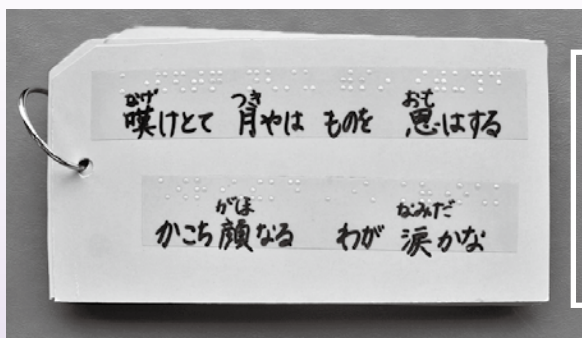 なげ つき おも
嘆けとて 月やは ものを 思はする
がほ なみだ
かこち顔なる わが 涙かな